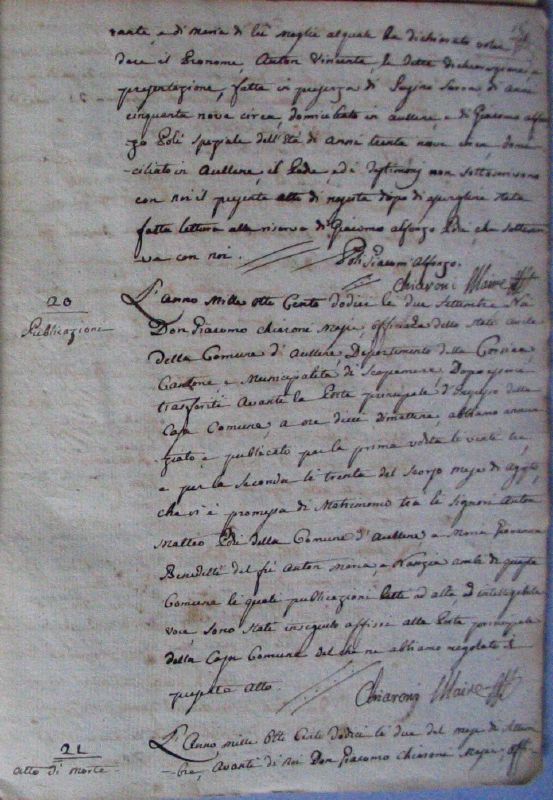 rante, e di Maria di lui moglie al quale ha dichiarato voler
dare il Prenome, Anton Vincente, le dette dichiarazione, e
presentazione, fatta in presenza di
cinquanta nove circa, domiciliato in aullene e di Giacomo alfon
zo Poli speziale dell'età di anni trenta nove circa domi
ciliato in Aullene, il Padre, ed i Testimonj non sottoscrivono
con noi il presente atto di nascita dopo di avergliene stata
fatta lettura alla riserva di Giacomo alfonzo Poli, che sottoscri
va con noi.
Poli Giacom' Alfonzo.
Chiaroni Maire
20
Publicazione
L'anno Mille Otto Cento dodici li due Settembre Noi
Don Giacomo Chiaroni Mere, officiale dello Stato Civile
della Comune d'Aullene Dipartimento della Corsica
Cantone, e Municipalità di Scopamene Dopo essersi
trasferiti Avante la Porta principale d'Ingresso della
Casa Comune, a ore dieci di mattina, abbiamo anun
ziato e publicato per la prima volta li venti tre,
e per la Seconda li trenta del Scorso Mese di Agosto,
che vi è promessa di Matrimonio tra li Signori Anton
Matteo Poli della Comune d'Aullene, e Maria
Benedetti del fù Anton Maria, e Nunzia ambi di questa
Comune le quali publicazioni lette ad alta ed intelligibile
voce, sono state in seguito affisse alla Porta principale
della Casa Comune del che ne abbiamo regolato il
presente Atto.
Chiaroni Maire
21
Atto di morte
L'Anno mille Otto Cento dodici li due del mese di Settem
bre, Avante di Noi Don Giacomo Chiaroni Mere, off